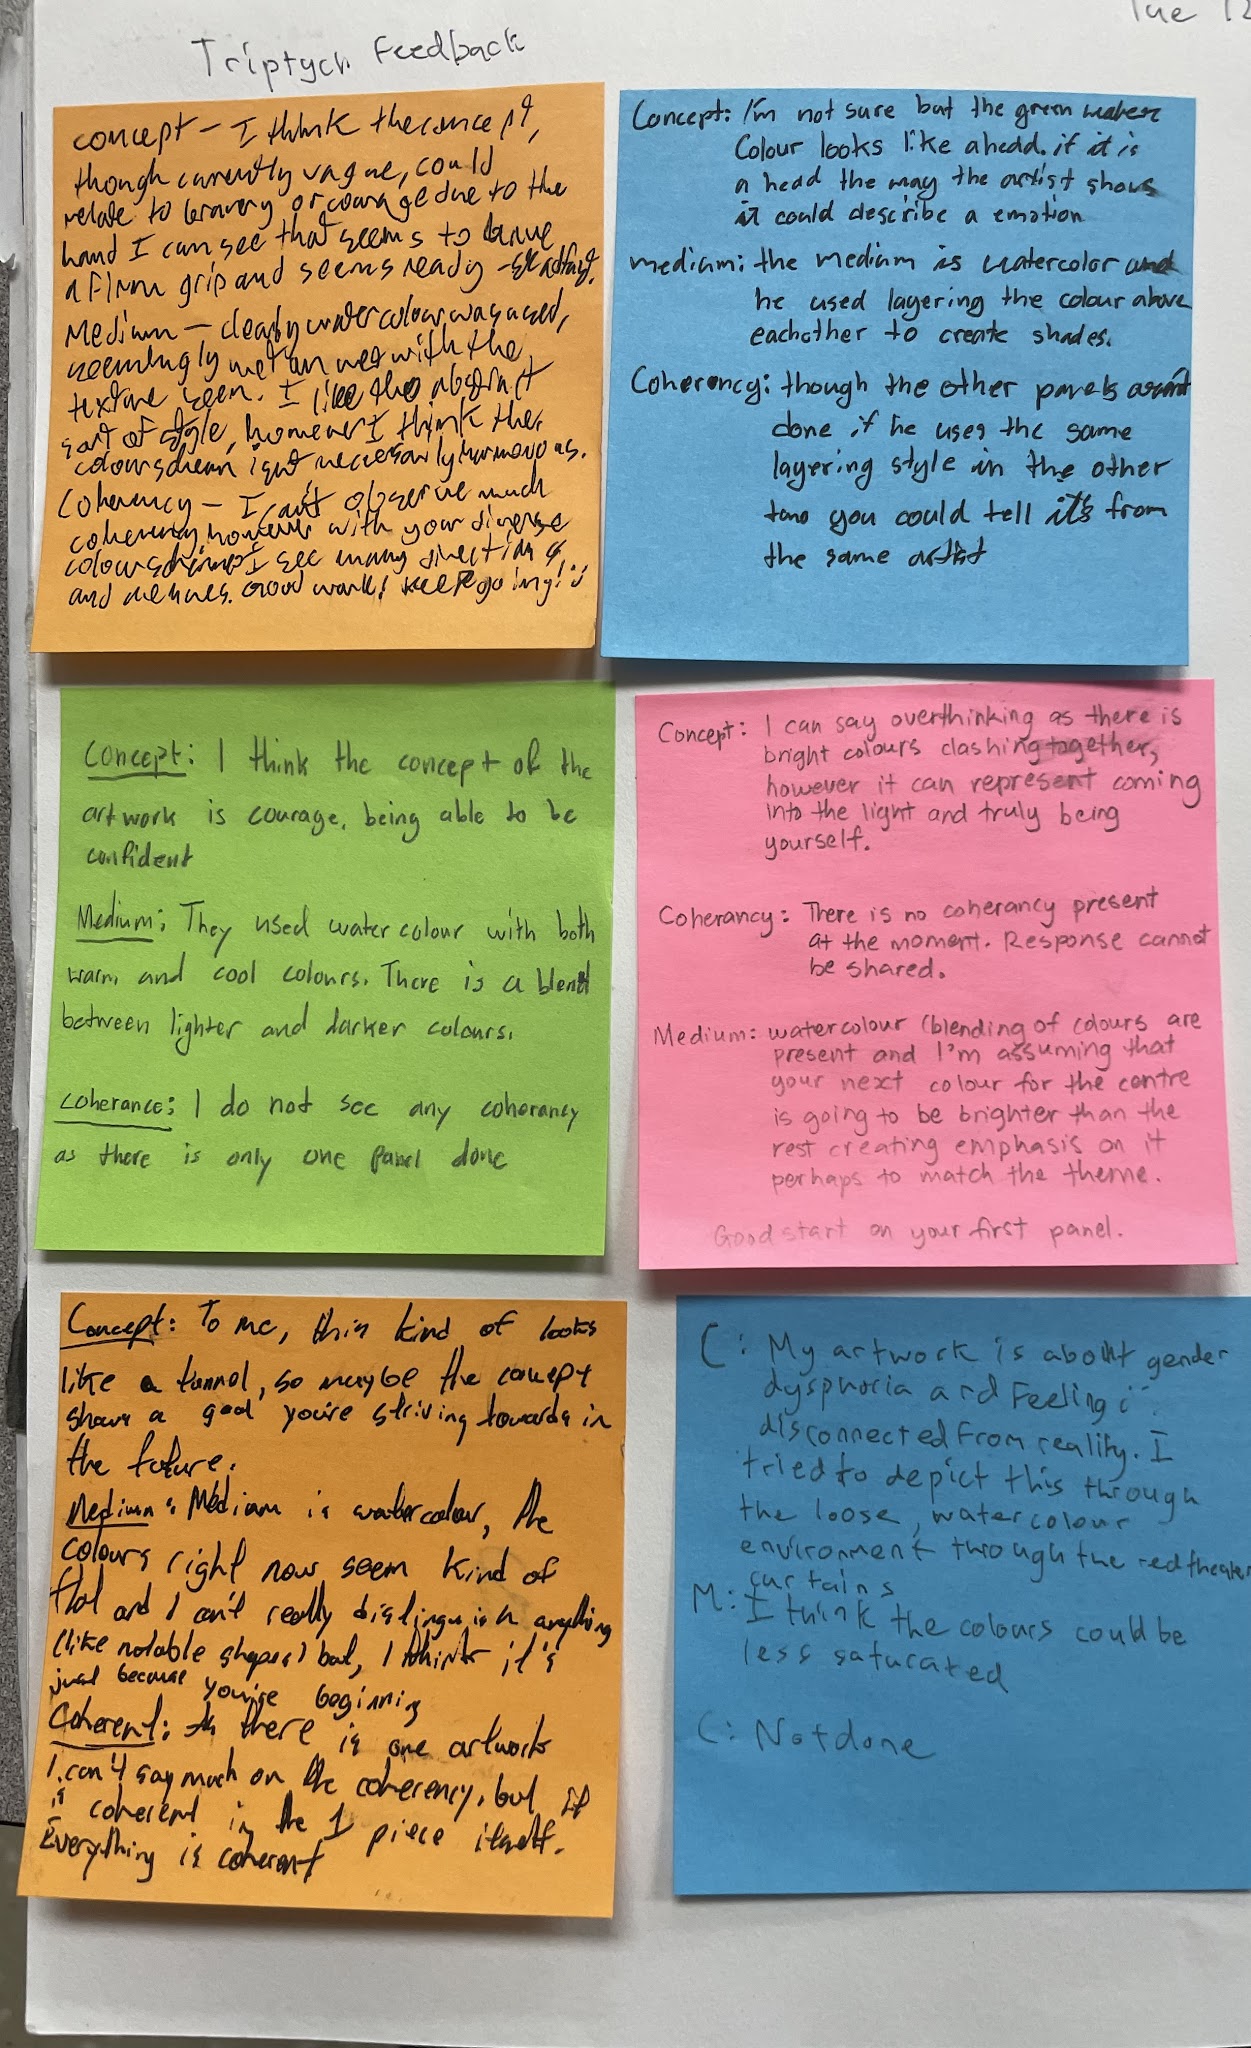 Tue 12
Triptych Feedback
concept - I think the concept,
though currently vague, could
relate to bravery or courage due to the
hand I can see that seems to have
a firm grip and seems ready - steadfast.
Medium - clearly watercolour was used,
seemingly wet on wet with the
texture seen. I like the abstract
sort of style, however I think the
colour scheme isn't necessarily harmonous.
Coherency - I can't observe much
coherency, however with your diverse
colour scheme I see many directions
and Good work! Keep going! :)
Concept: I'm not sure but the green water
Colour looks like ahead. if it is
a head the way the artist shows
it could describe a emotion
medium: the medium is watercolor and
he used layering the colour above
eachother to create shades.
Coherency: though the other panels arent
done if he uses the same
layering style in the other
two you could tell it's from
the same artist
Concept: I think the concept of the
artwork is courage, being able to be
confident
Medium: They used watercolour with both
warm and cool colours. There is a blend
between lighter and darker colours.
Coherance: I do not see any coherancy
as there is only one panel done
Concept: I can say overthinking as there is
bright colours clashing together,
however it can represent coming
into the light and truly being
yourself.
Coherancy: There is no coherancy present
at the moment. Response cannot
be shared.
Medium: watercolour (blending of colours are
present and I'm assuming that
your next colour for the centre
is going to be brighter than the
rest creating emphasis on it
perhaps to match the theme.
Good start on your first panel.
Concept: To me, this kind of looks
like a tunnel, so maybe the concept
shows a goal you're striving towards in
the future.
Medium: Medium is watercolour, the
colours right now seem kind of
flat and I can't really distinguish anything
(like notable shapes) but, I think it's
just because you're beginning
Coherent: As there is one artwork
I can't say much on the coherency, but it
is coherent in the 1 piece itself.
Everything is coherent
C: My artwork is about gender
dysphoria and Feeling
disconnected from reality. I
tried to depict this through
the loose, watercolour
environment through the red theater
curtains
M: I think the colours could be
less saturated
C: Not done